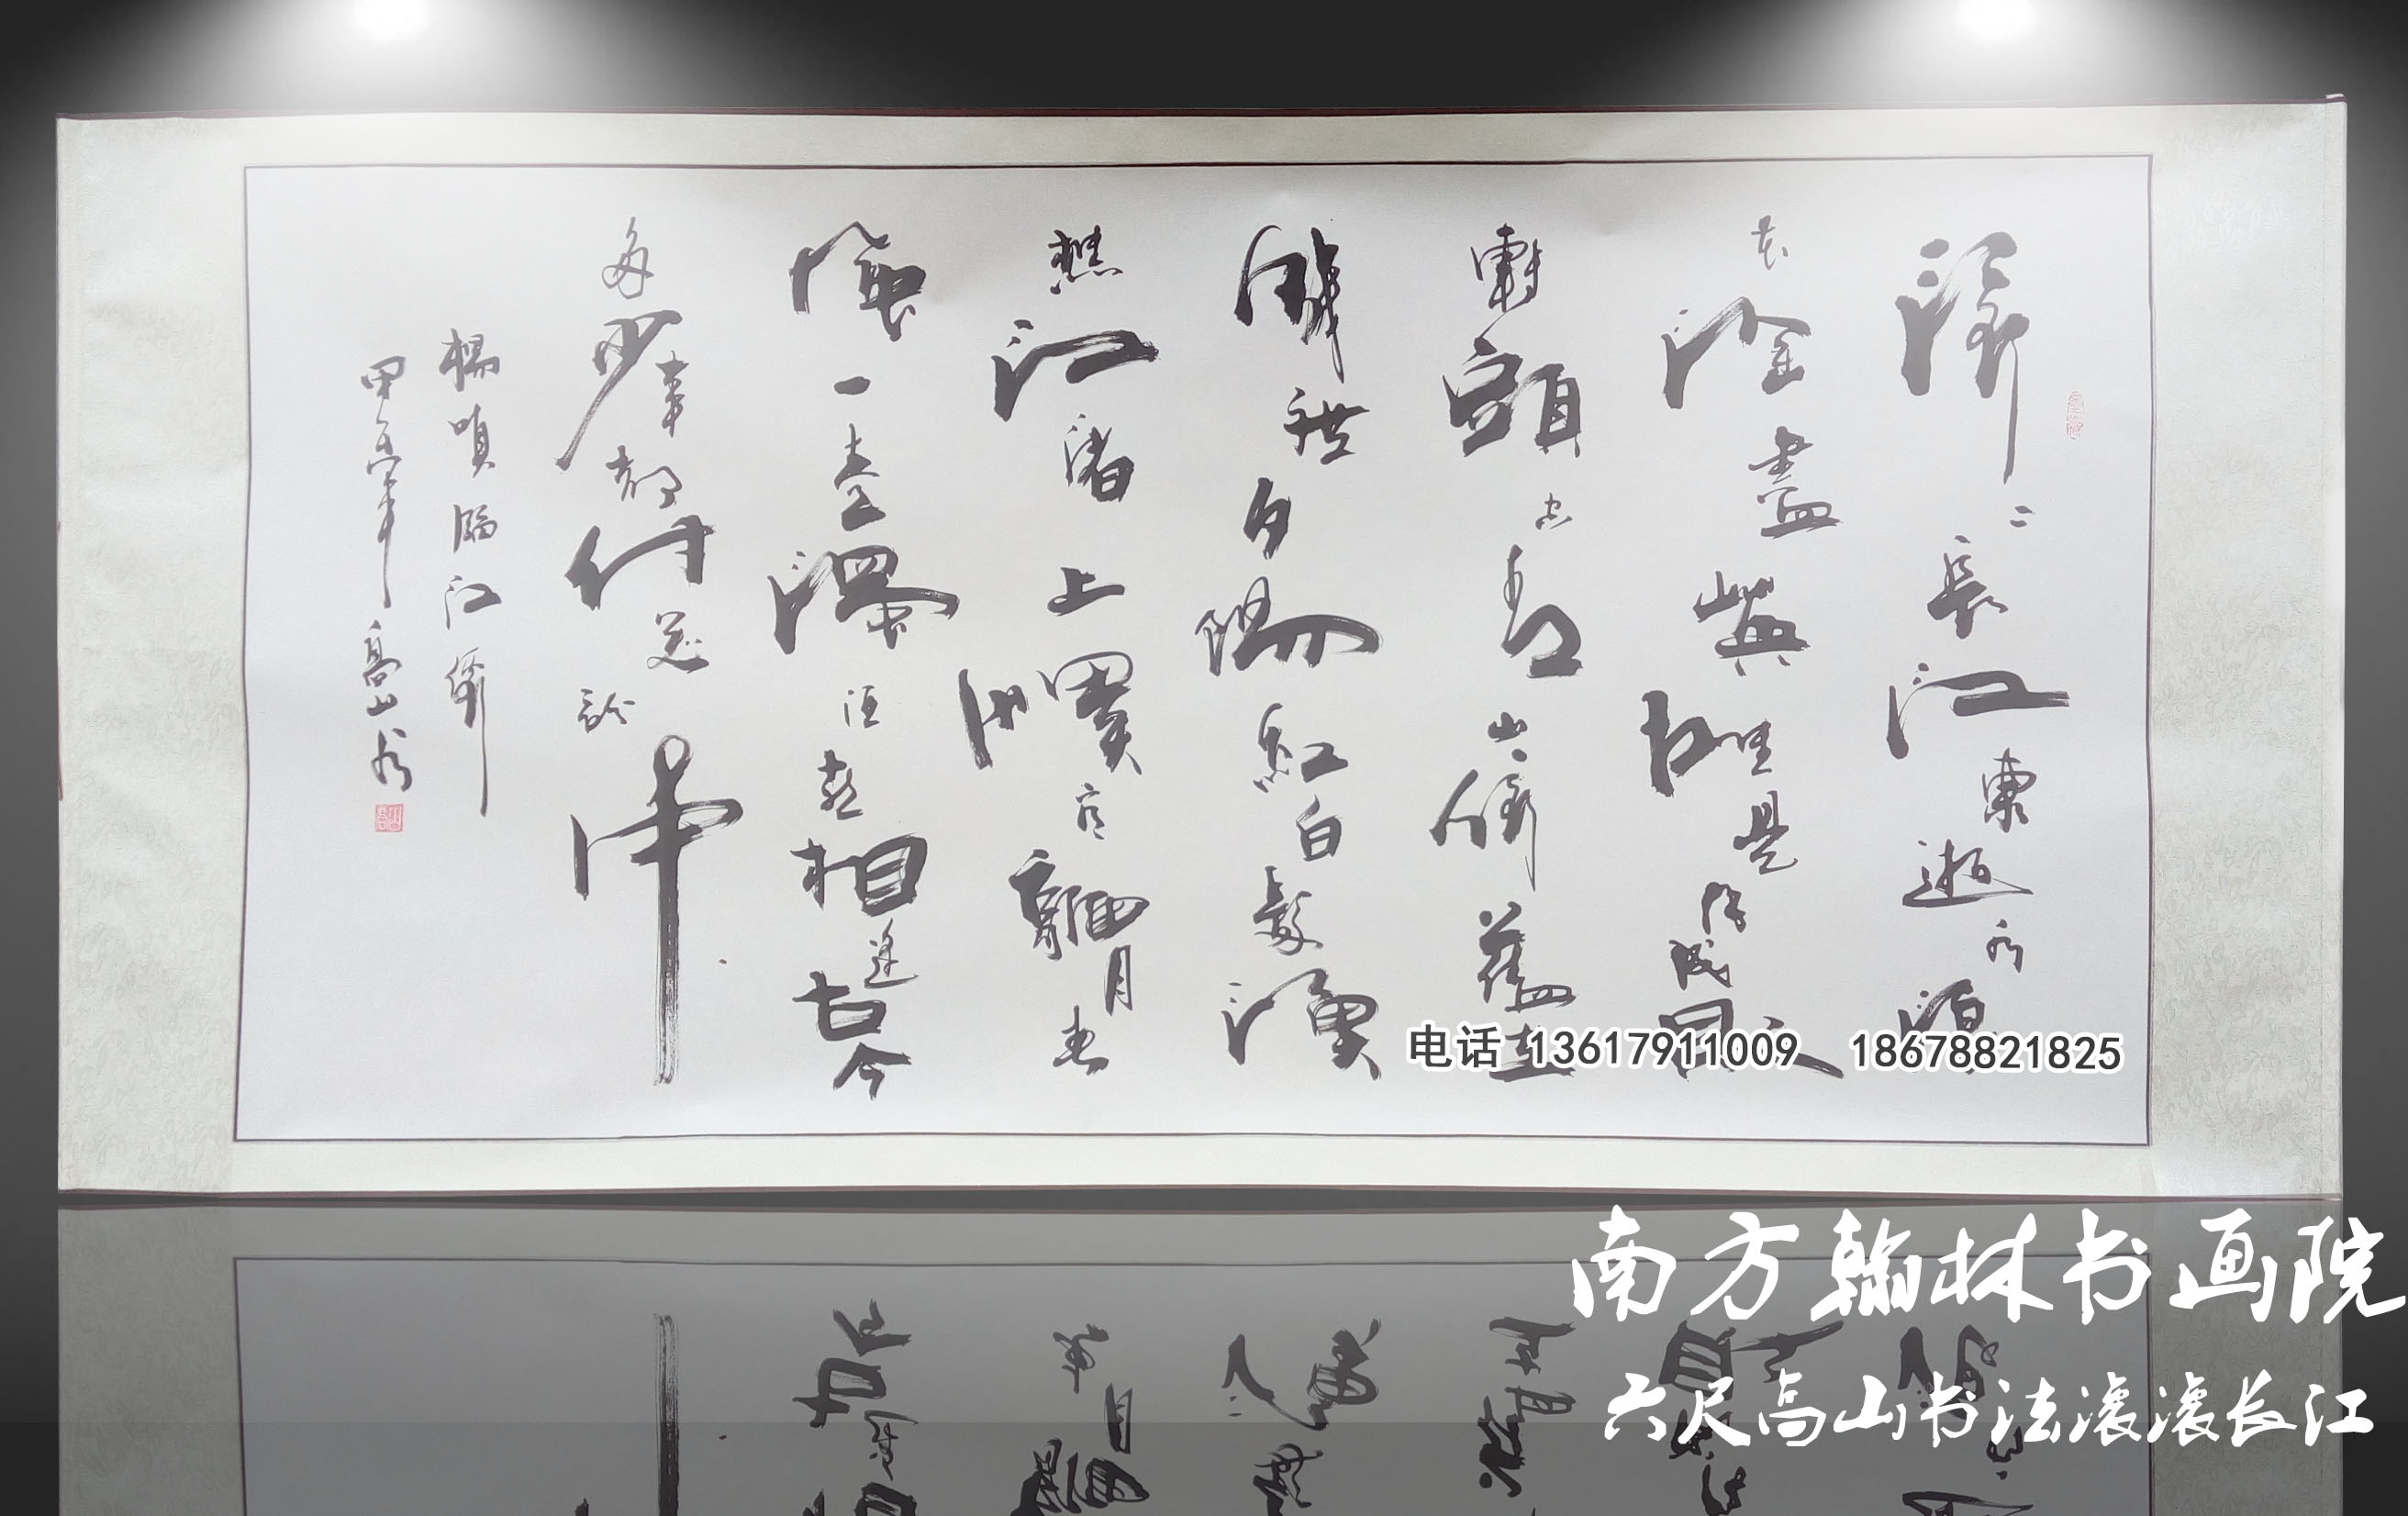 滚〻長江東逝水浪
花淘盡英雄是非成敗
轉頭空青山依舊在
幾度夕陽紅白髮漁
樵江渚上慣看秋月春
風一壺濁酒喜相逢古今
多少事都付笑談中
楊慎臨江仙
甲辰年高山书
电话 13617911009 18678821825
南方翰林书画院
六尺高山书法滚滚长江